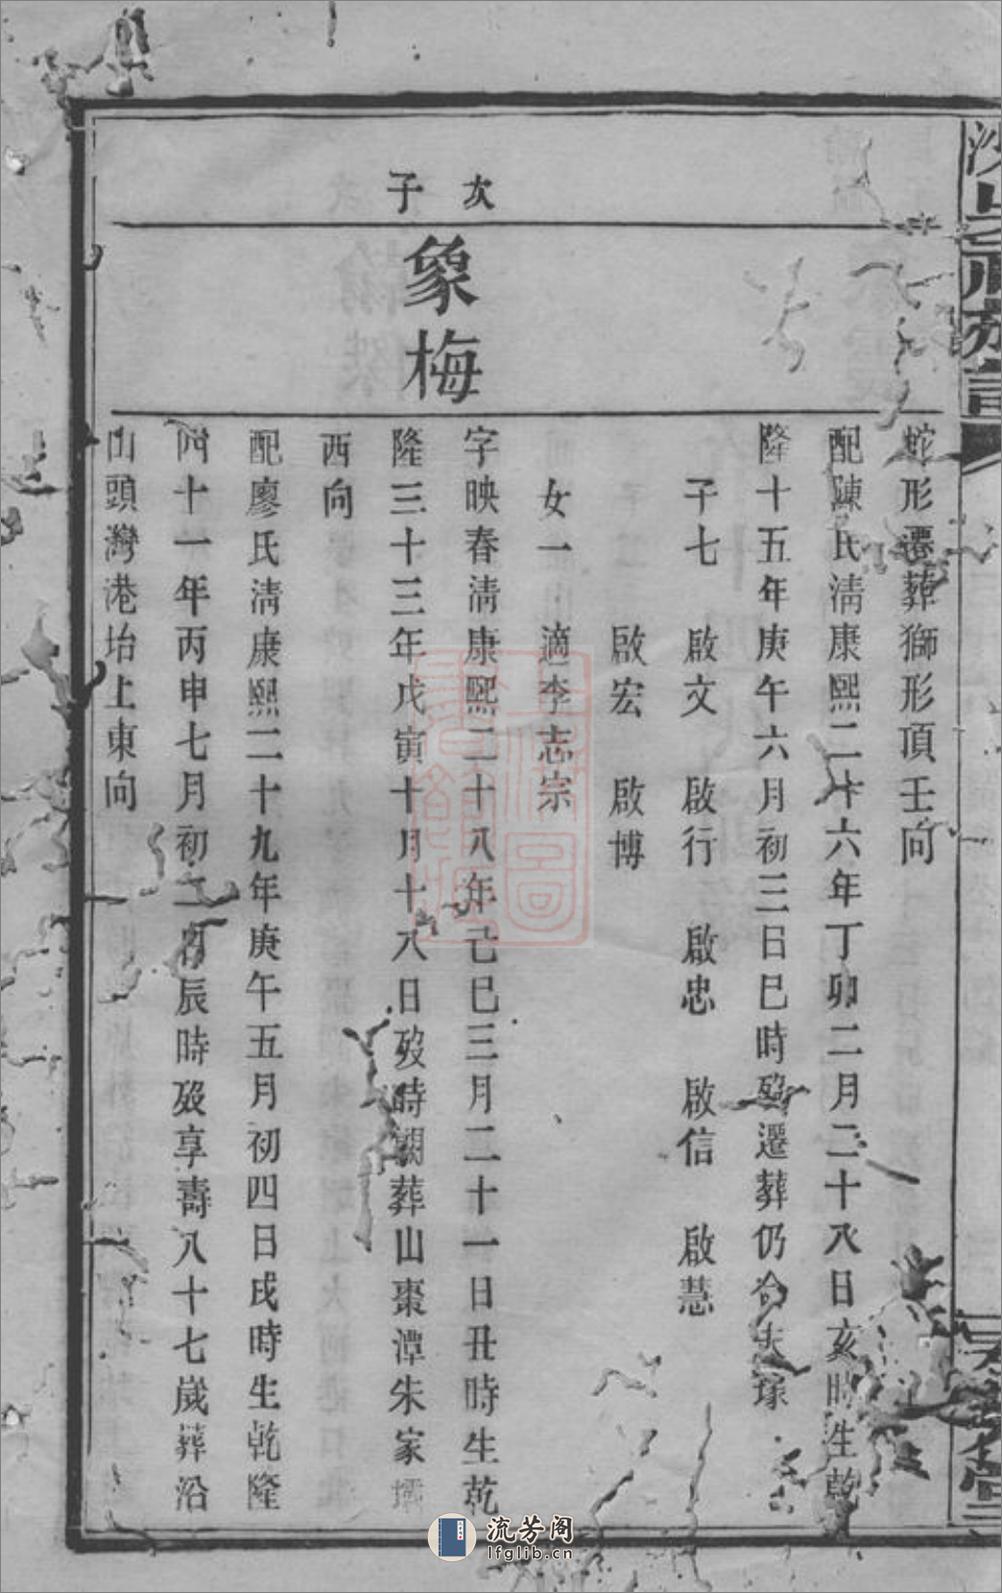 蛇形遷葬獅形頂壬向
配陳氏淸康熙二十六年丁卯二月二十八日亥時生乾
隆十五年庚午六月初三日巳時歿遷葬仍合夫塚
子七 啟文 啟行 啟忠 啟信 啟慧
啟宏 啟博
女一 適李志宗
次子
象梅
字映春淸康熙二十八年己巳三月二十一日丑時生乾
隆三十三年戊寅十月十八日歿時朝葬山棗潭朱家壩
西向
配廖氏淸康熙二十九年庚午五月初四日戌時生乾隆
四十一年丙申七月初二日辰時歿享壽八十七歲葬沿
山頭灣港坮上東向
流芳阁
lfglib.cn